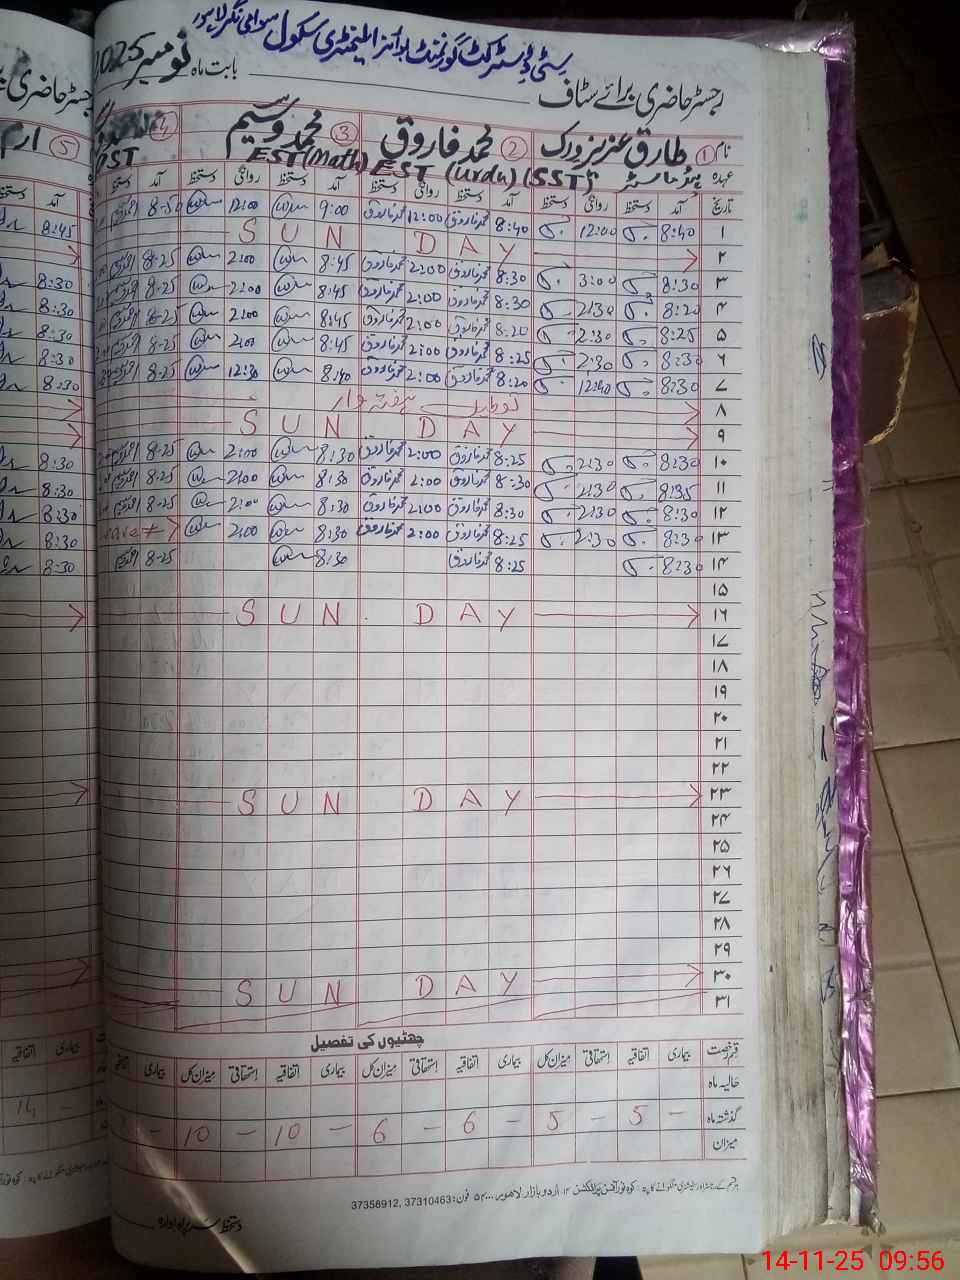 سٹی ڈسٹرکٹ گورنمنٹ بوائز ایلیمنٹری سکول سوامی نگر لاہور
رجسٹر حاضری برائے سٹاف بابت ماہ نومبر 2025
نام ① طارق عزیز ورک ② محمد فاروق ③ محمد وسیم ④ ⑤ ارم
عہدہ ہیڈ ماسٹر (SST) EST (Urdu) EST (Math) PST
تاریخ آمد دستخظ روانگی دستخظ آمد دستخظ روانگی دستخظ آمد دستخظ روانگی دستخظ آمد دستخظ
۱ 8:40 12:00 8:40 محمد فاروق 12:00 محمد فاروق 9:00 12:00 8-50 8:45
۲ SUN DAY
۳ 8:30 3:00 8:30 محمد فاروق 2:00 محمد فاروق 8:45 2:00 8-25 8:30
۴ 8:20 2:30 8:30 محمد فاروق 2:00 محمد فاروق 8:45 2:00 8-25 8:30
۵ 8:25 2:30 8:20 محمد فاروق 2:00 محمد فاروق 8:45 2:00 8-25 8:30
۶ 8:30 2:30 8:25 محمد فاروق 2:00 محمد فاروق 8:45 2:00 8-25 8:30
۷ 8:30 12:40 8:20 محمد فاروق 2:00 محمد فاروق 8:40 12:30 8-25 8:30
۸ تعطیل ہفتہ وار
۹ SUN DAY
۱۰ 8:30 2:30 8:25 محمد فاروق 2:00 محمد فاروق 8:30 2:00 8-25 8:30
۱۱ 8:35 2:30 8:30 محمد فاروق 2:00 محمد فاروق 8:30 2:00 8-25 8:30
۱۲ 8:30 2:30 8:30 محمد فاروق 2:00 محمد فاروق 8:30 2:00 8-25 8:30
۱۳ 8:30 2:30 8:25 محمد فاروق 2:00 محمد فاروق 8:30 2:00 8:30
۱۴ 8:30 8:25 محمد فاروق 8:30 8-25 8:30
۱۵
۱۶ SUN DAY
۱۷
۱۸
۱۹
۲۰
۲۱
۲۲
۲۳ SUN DAY
۲۴
۲۵
۲۶
۲۷
۲۸
۲۹
۳۰ SUN DAY
۳۱
چھٹیوں کی تفصیل
قسم رخصت بیماری اتفاقیہ استحقاقی میزان کل بیماری اتفاقیہ استحقاقی میزان کل بیماری اتفاقیہ استحقاقی میزان کل بیماری
حالیہ ماہ
گذشتہ ماہ - 5 - 5 - 6 - 6 - 10 - 10 -
میزان
اردو بازار لاہور فون: 37310463, 37358912
دستخظ سربراہ ادارہ
14-11-25 09:56